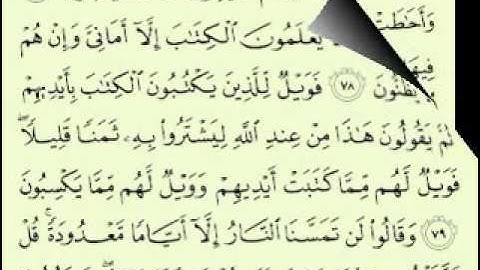 يَعْلَمُونَ الْكِتَابَ إِلَّا أَمَانِيَّ وَإِنْ هُمْ
يَظُنُّونَ ﴿٧٨﴾ فَوَيْلٌ لِّلَّذِينَ يَكْتُبُونَ الْكِتَابَ بِأَيْدِيهِمْ
ثُمَّ يَقُولُونَ هَٰذَا مِنْ عِندِ اللَّهِ لِيَشْتَرُوا بِهِ ثَمَنًا قَلِيلًا ۖ
فَوَيْلٌ لَّهُم مِّمَّا كَتَبَتْ أَيْدِيهِمْ وَوَيْلٌ لَّهُم مِّمَّا يَكْسِبُونَ
﴿٧٩﴾ وَقَالُوا لَن تَمَسَّنَا النَّارُ إِلَّا أَيَّامًا مَّعْدُودَةً ۚ قُلْ